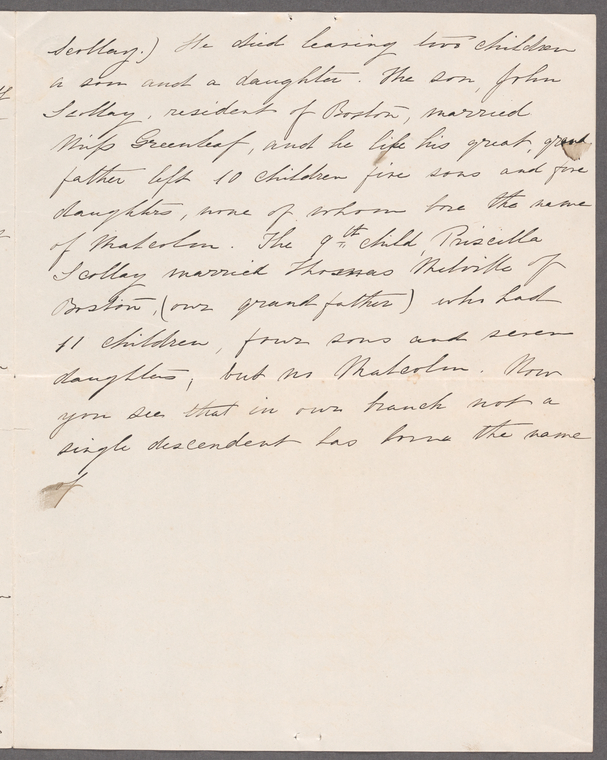 Scollay.) He died leaving two children
a son and a daughter. The son, John
Scollay, resident of Boston, married
Miss Greenleaf, and he life his great, grand
father left 10 children five sons and five
daughters, none of whom bore the name
of Malcolm. The 9th child Priscilla
Scollay married Thomas Melville of
Boston, (our grandfather) who had
11 children, four sons and seven
daughters, but no Malcolm. Now
you see that in our branch not a
single descendent has borne the name
of